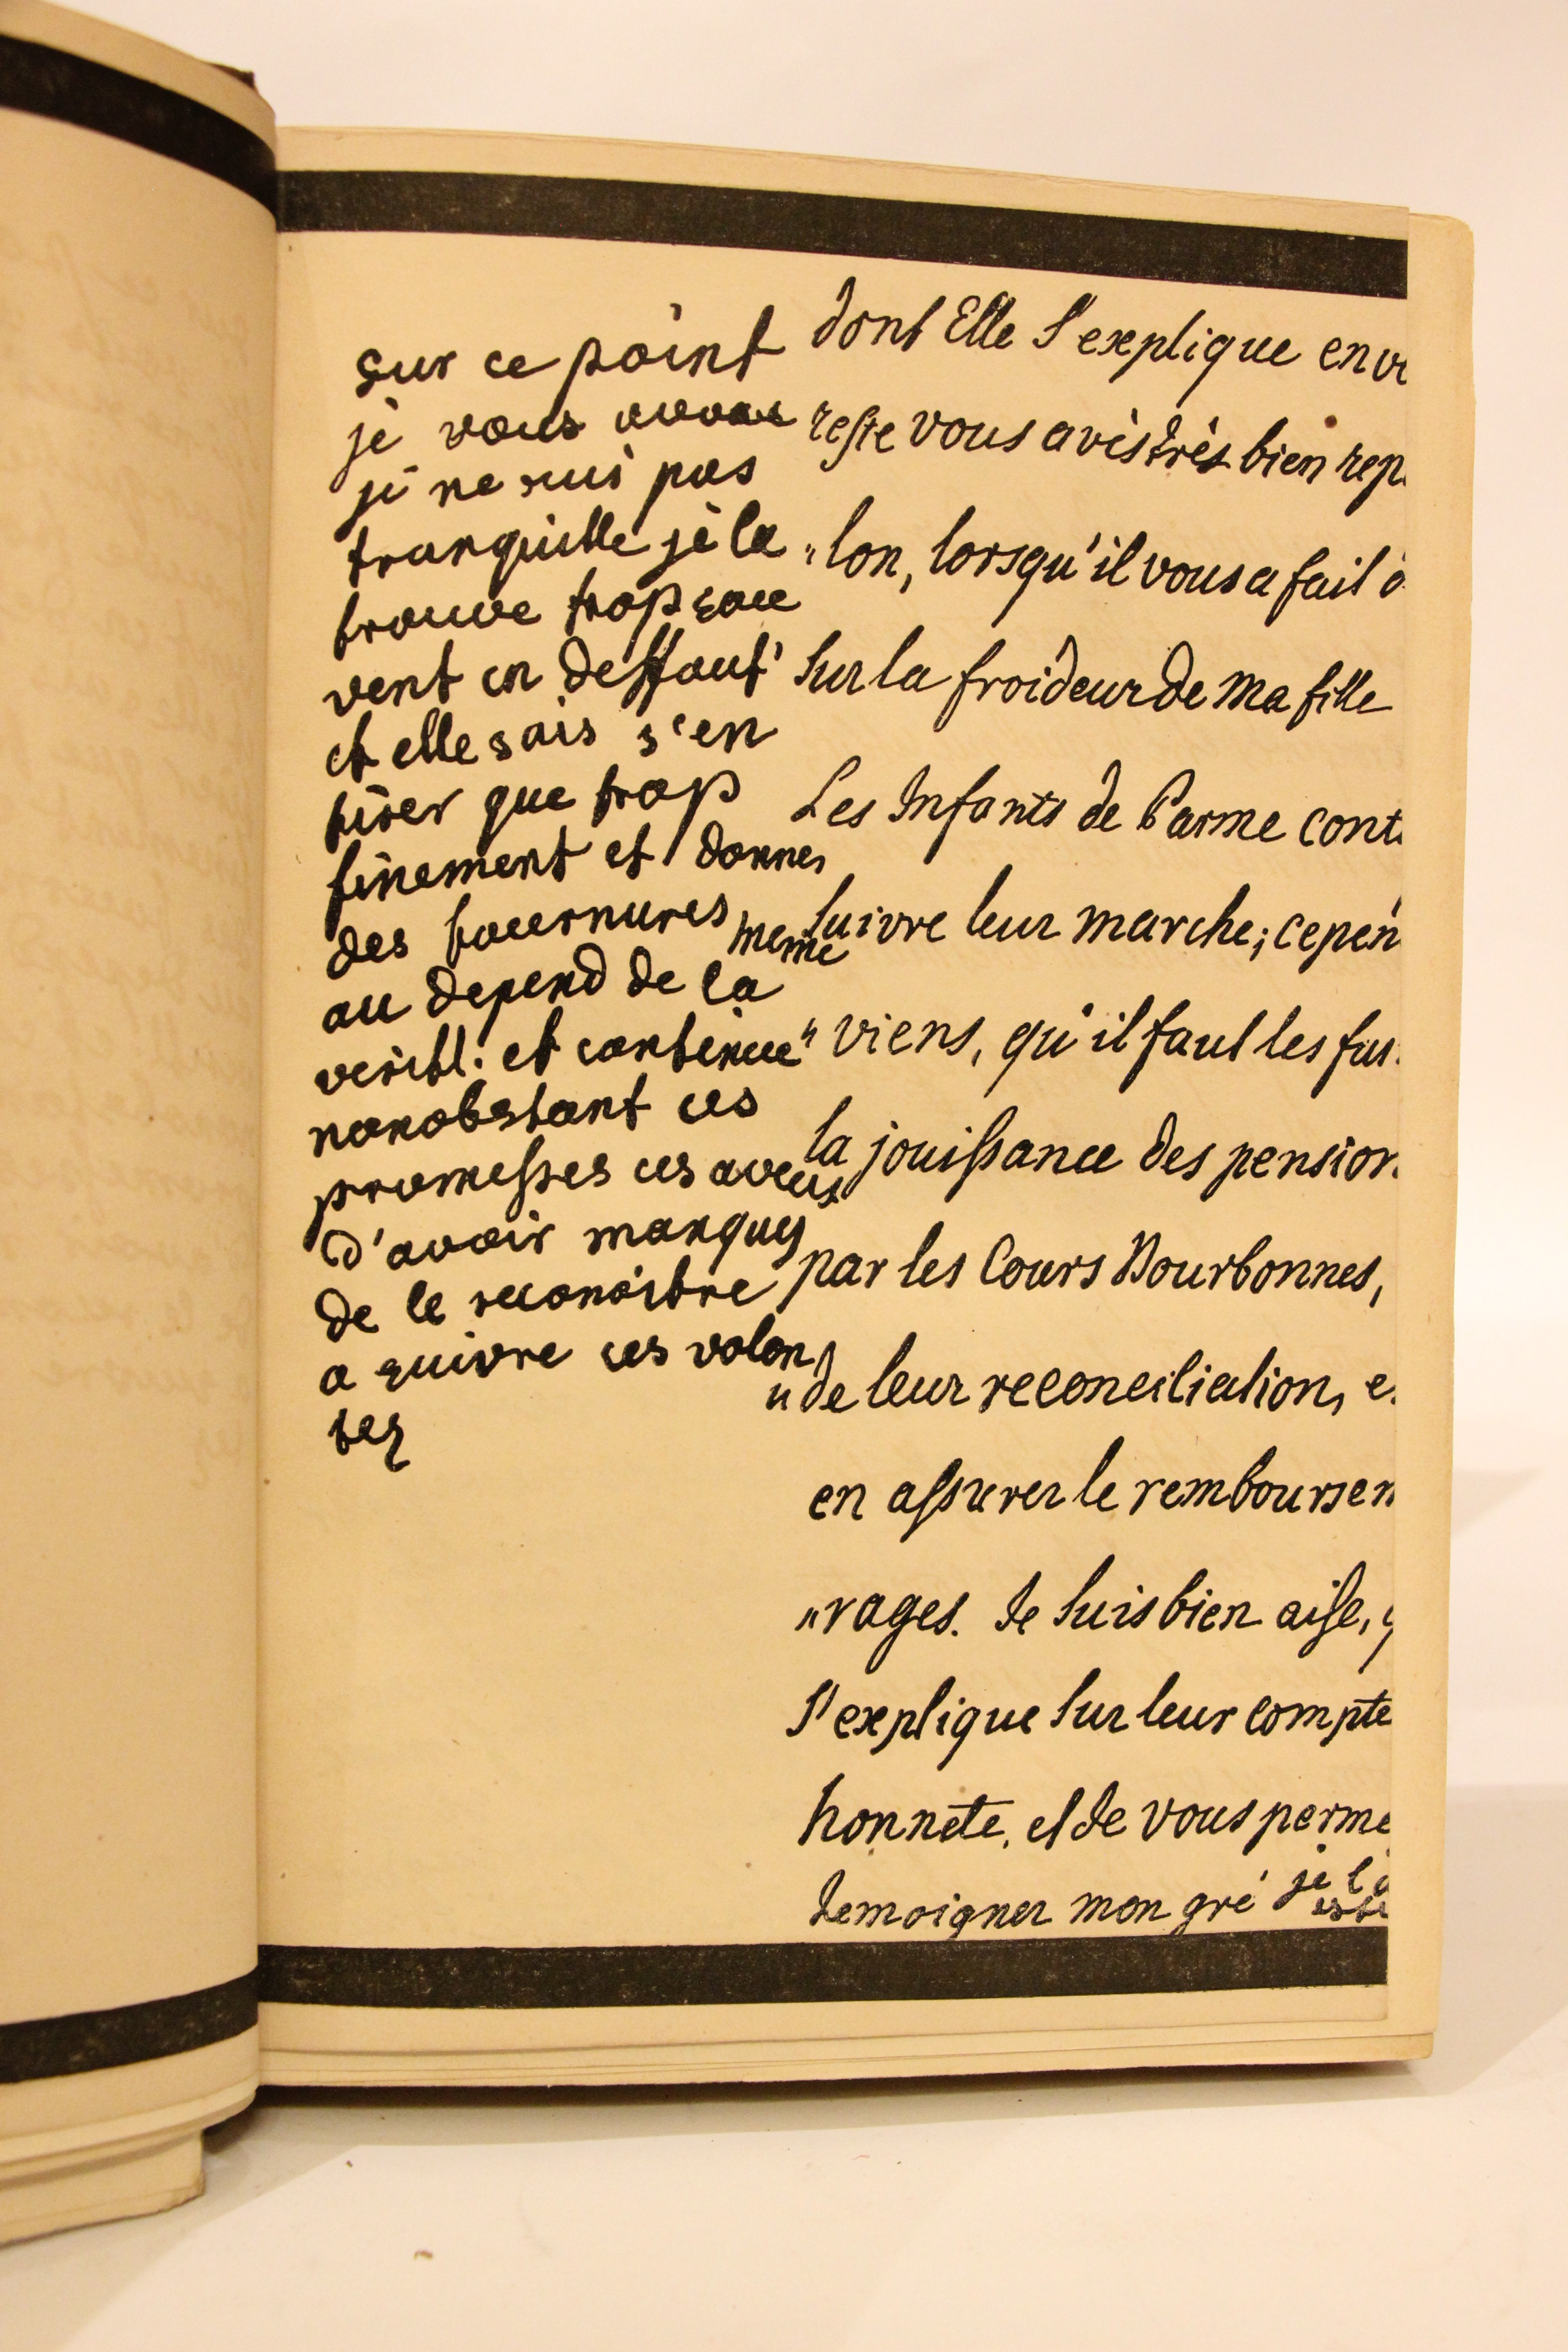 sur ce point
je vous avoue
je ne suis pas
tranquille je la
trouve trop sou
vent en deffaut
et elle sais s'en
tirer que trop
finement et donner
des tournures même
au depend de la
verité: et continue
nonobstant ces
promesses ces aveux
d'avoir manquez
de le reconoistre
a suivre ces volon
tez
dont Elle S'explique en
reste vous avès très bien rep
„lon, lorsqu'il vous a fait
Sur la froideur de ma fille
Les Infants de Parme cont
suivre leur marche; cepen
„viens, qu'il faut les fus
la jouissance des pension
par les Cours Bourbonnes,
„de leur reconciliation,
en assurer le remboursem
„rages. Je suis bien aise,
S'explique Sur leur compte
honnete, et de vous perme
temoigner mon gré je l